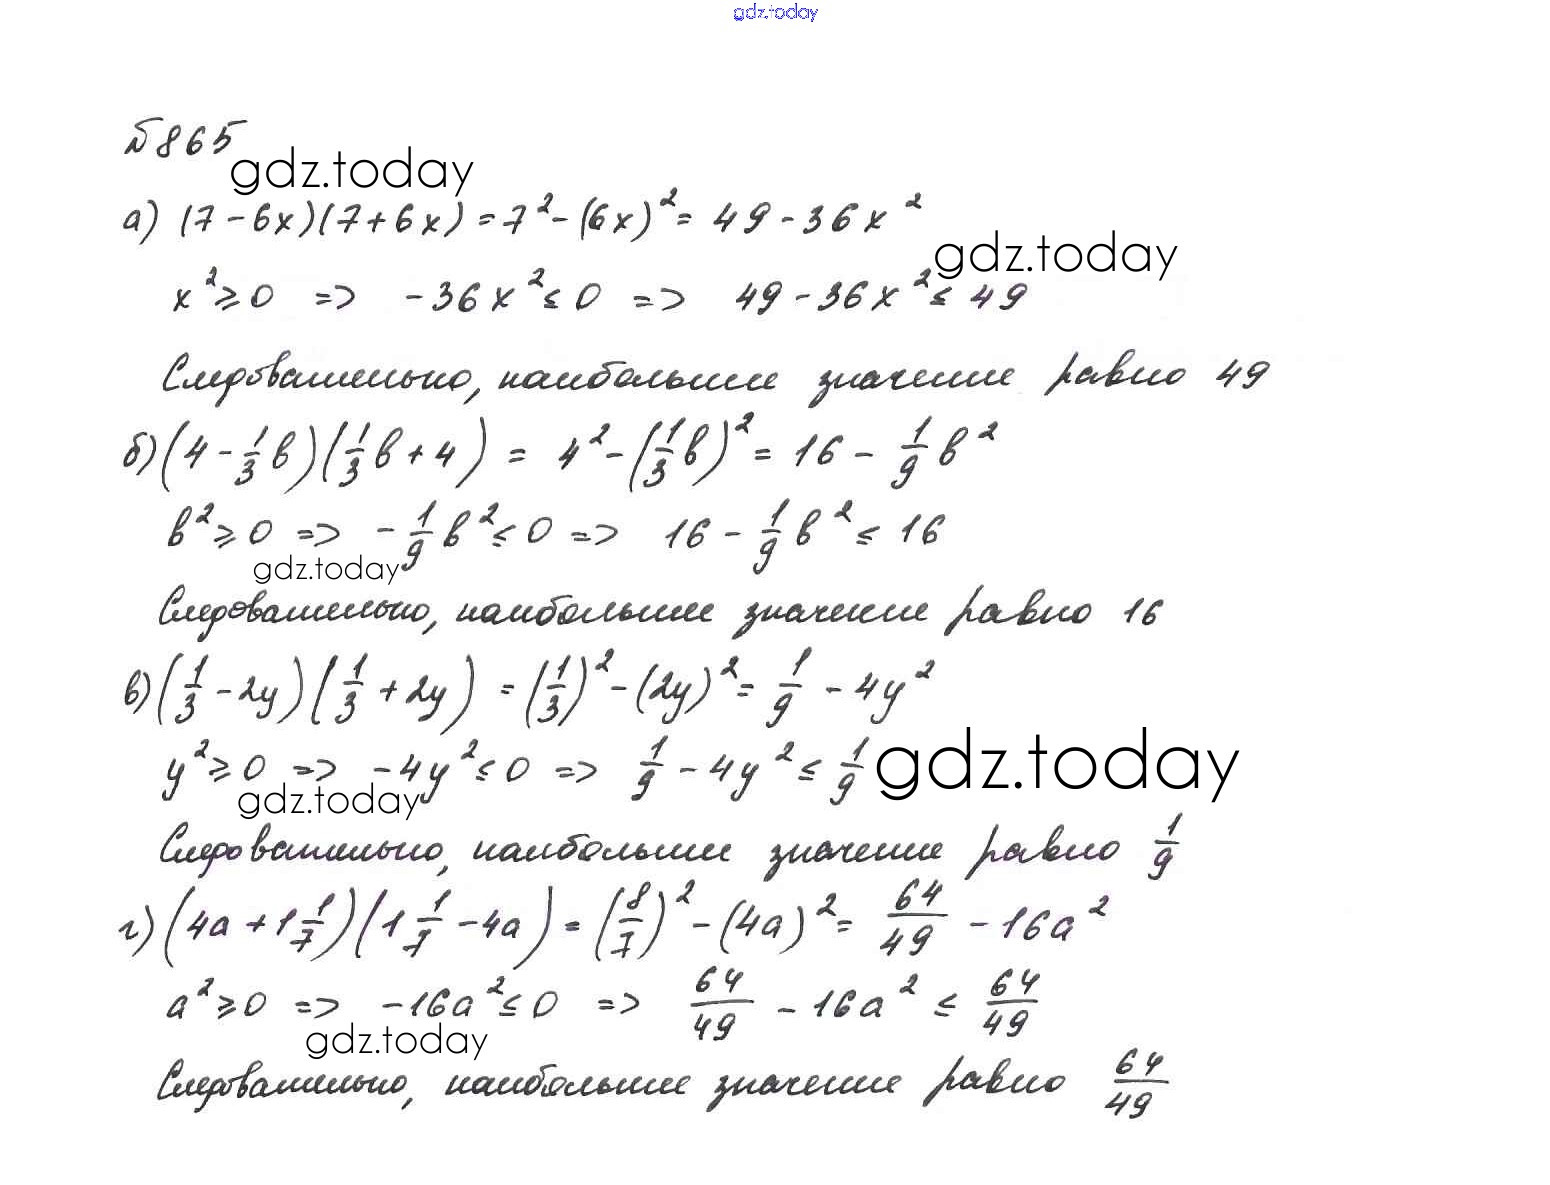 gdz.today
№865
gdz.today
а) (7-6x)(7+6x)=7²-(6x)²=49-36x²
gdz.today
x²≥0 => -36x²≤0 => 49-36x²≤49
Следовательно, наибольшее значение равно 49
б) (4-1/3b)(1/3b+4) = 4²-(1/3b)²=16-1/9b²
b²≥0 => -1/9b²≤0 => 16-1/9b²≤16
gdz.today
Следовательно, наибольшее значение равно 16
в) (1/3-2y)(1/3+2y) =(1/3)²-(2y)²=1/9-4y²
y²≥0 => -4y²≤0 => 1/9-4y²≤1/9
gdz.today
gdz.today
Следовательно, наибольшее значение равно 1/9
г) (4a+1 1/7)(1 1/7-4a)=(8/7)²-(4a)²=64/49-16a²
a²≥0 => -16a²≤0 => 64/49-16a²≤64/49
gdz.today
Следовательно, наибольшее значение равно 64/49